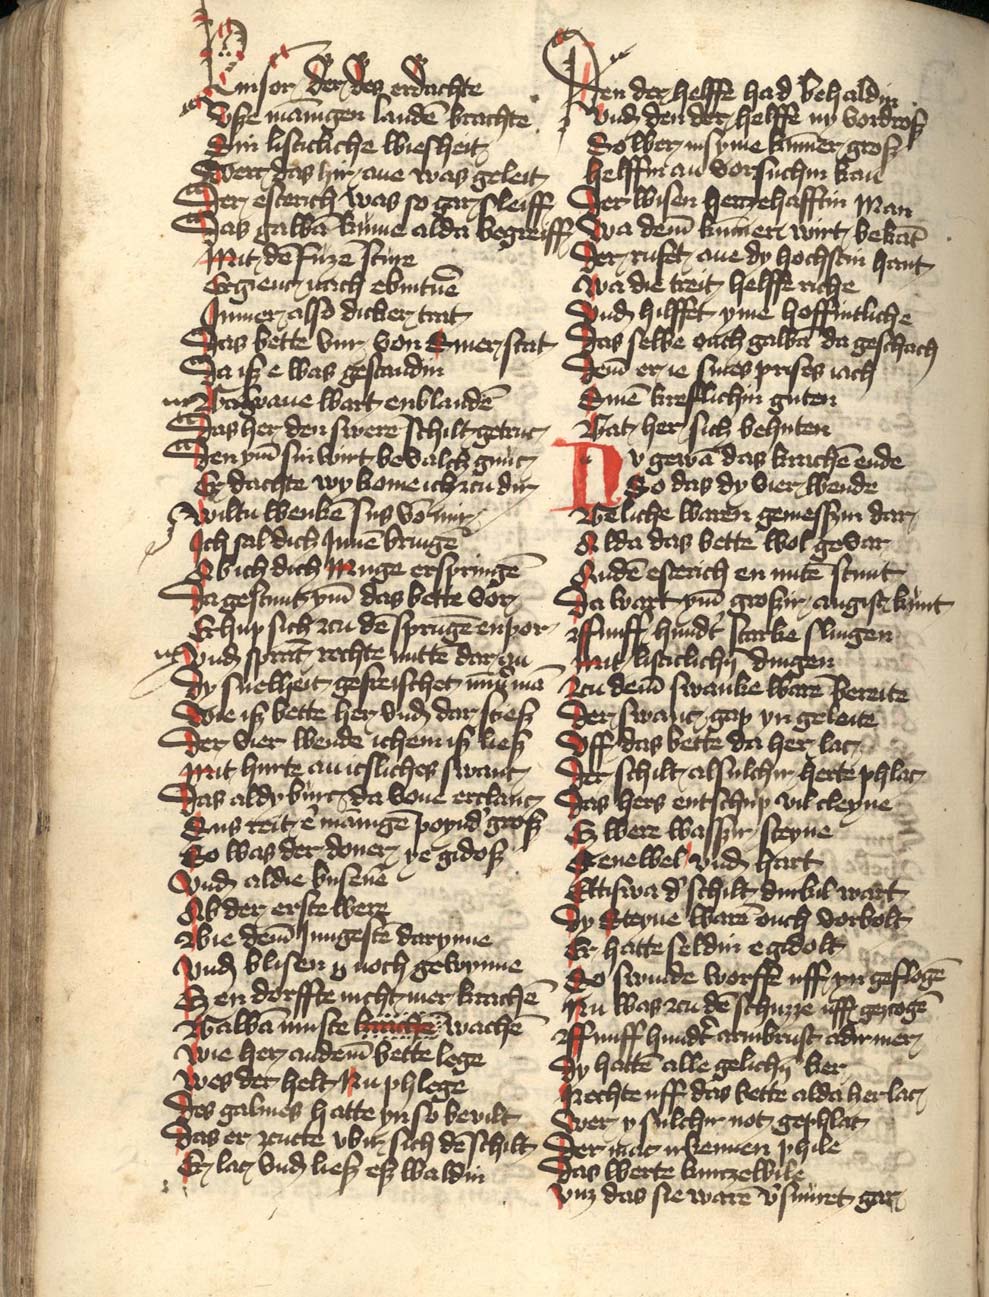 Clinsor der des erdachte
Vsze mānigen landē brachte
Sin listicliche wiesheit
Werc das hir ane was geleit
Der esterich was so gar sleiff
Das gabā kume alda begreiff
Mit dē fuze sture
Er gienc nach ebintuē
Immer also dicker trat
Das bette vur von siner stat
Da isz e was gestandin
Gawane wart enblandē
Das her den swere schilt getruc
Den ym sin wirt bevalch genuc
Er dachte wy kome ich zcu dir
Wiltu wenke sus vō mir
Ich sal dich Innē bringe
Ab ich dich Muge erspringē
Da gestunt ym das bette vor
Er hup sich zcu dē sprunge enpor
Vnd sprāc rechte mitte dar an
Dy snelheit gefreischet nūmer mā
Wie isz bette her vnd dar stiesz
Der vier wende ichein isz liesz
Mit hurte an icsliches swanc
Das al dy burc da vone erclanc
Sus reit e mānigē poynd' grosz
So was der doner ye gidosz
Vnd al die busenē
Ab der erste were
Bie dem Jungestē darynne
Vnd blisen y noch gewynne
Ez en dorffte nicht mer krachē
Gabā muste wachē
Wie her an dem bette lege
Wes der helt Nu phlege
Des galmes hatte yn so bevilt
Das er zcucte vbir sich dē schilt
Er lac vnd liesz esz waldin
Den der helffe had behaldin
Vnd den der helffe ny vordrosz
So wer in syme kūmer grosz
Helffin an vorsuchin kan
Der wisen hertzehafftin Man
Wa dem kūmer wirt bekāt
Der rufet ane dy hochstin hant
Wa die treit helffe riche
Vnd hilffet yme hoffintliche
Das selbe ouch gabā da geschach
Dem er ie sines prises iach
Sinē kreftichin guten
Bat her sich behuten
Nv gewā das krachē ende
So das dy vier wende
Geliche waren gemesszin dar
Alda das bette wol gevar
An dē esterich en mittē stunt
Da wart ym groszir angist kunt
Ffunff hundt' starke slingen
Mit listiclichn dingen
Zcu dem swanke warē bereite
Der swanc gap yn geleite
Vff das bette da her lac
Der schilt alsulchir herte phlac
Das hers entschup vil cleyne
Ez were wasszir steyne
Senewel vnd hart
Ettiswa d' schilt durbil wart
Dy Steyne warē ouch vorbolt
Er hatte seldin e gidolt
So swinde worffe uff yn geflogē
Nu was zcu dē schuzze uff gezogē
Ffunff hundt' armbrust adir mer
Dy hattē alle gelichn ker
Rechte uff das bette alda her lac
Wer y sulchir not gephlac
Der mac irkennen phile
Das werte kurtzewile
Vnz das sie warē v'snurret gar